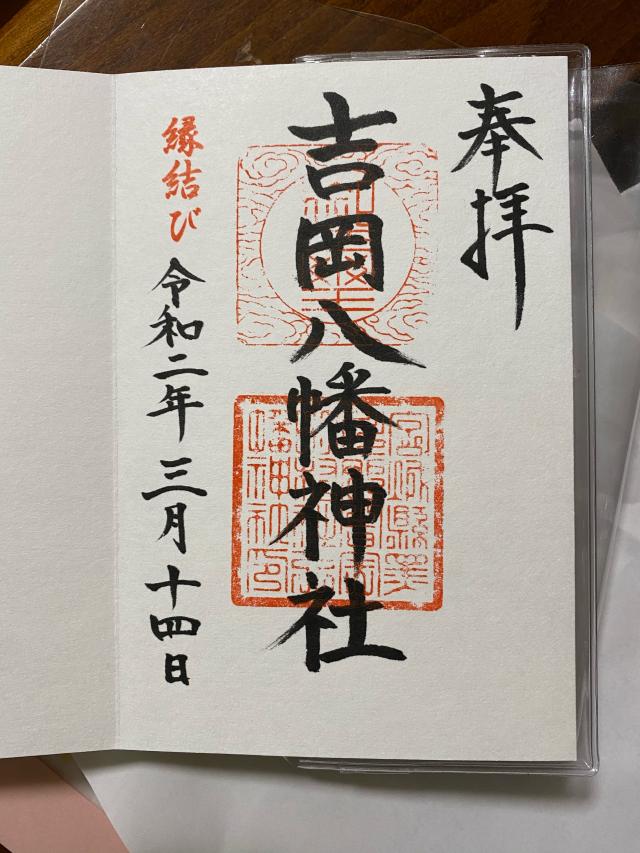 奉拝
吉岡八幡神社
縁結び
令和二年 三月 十四日